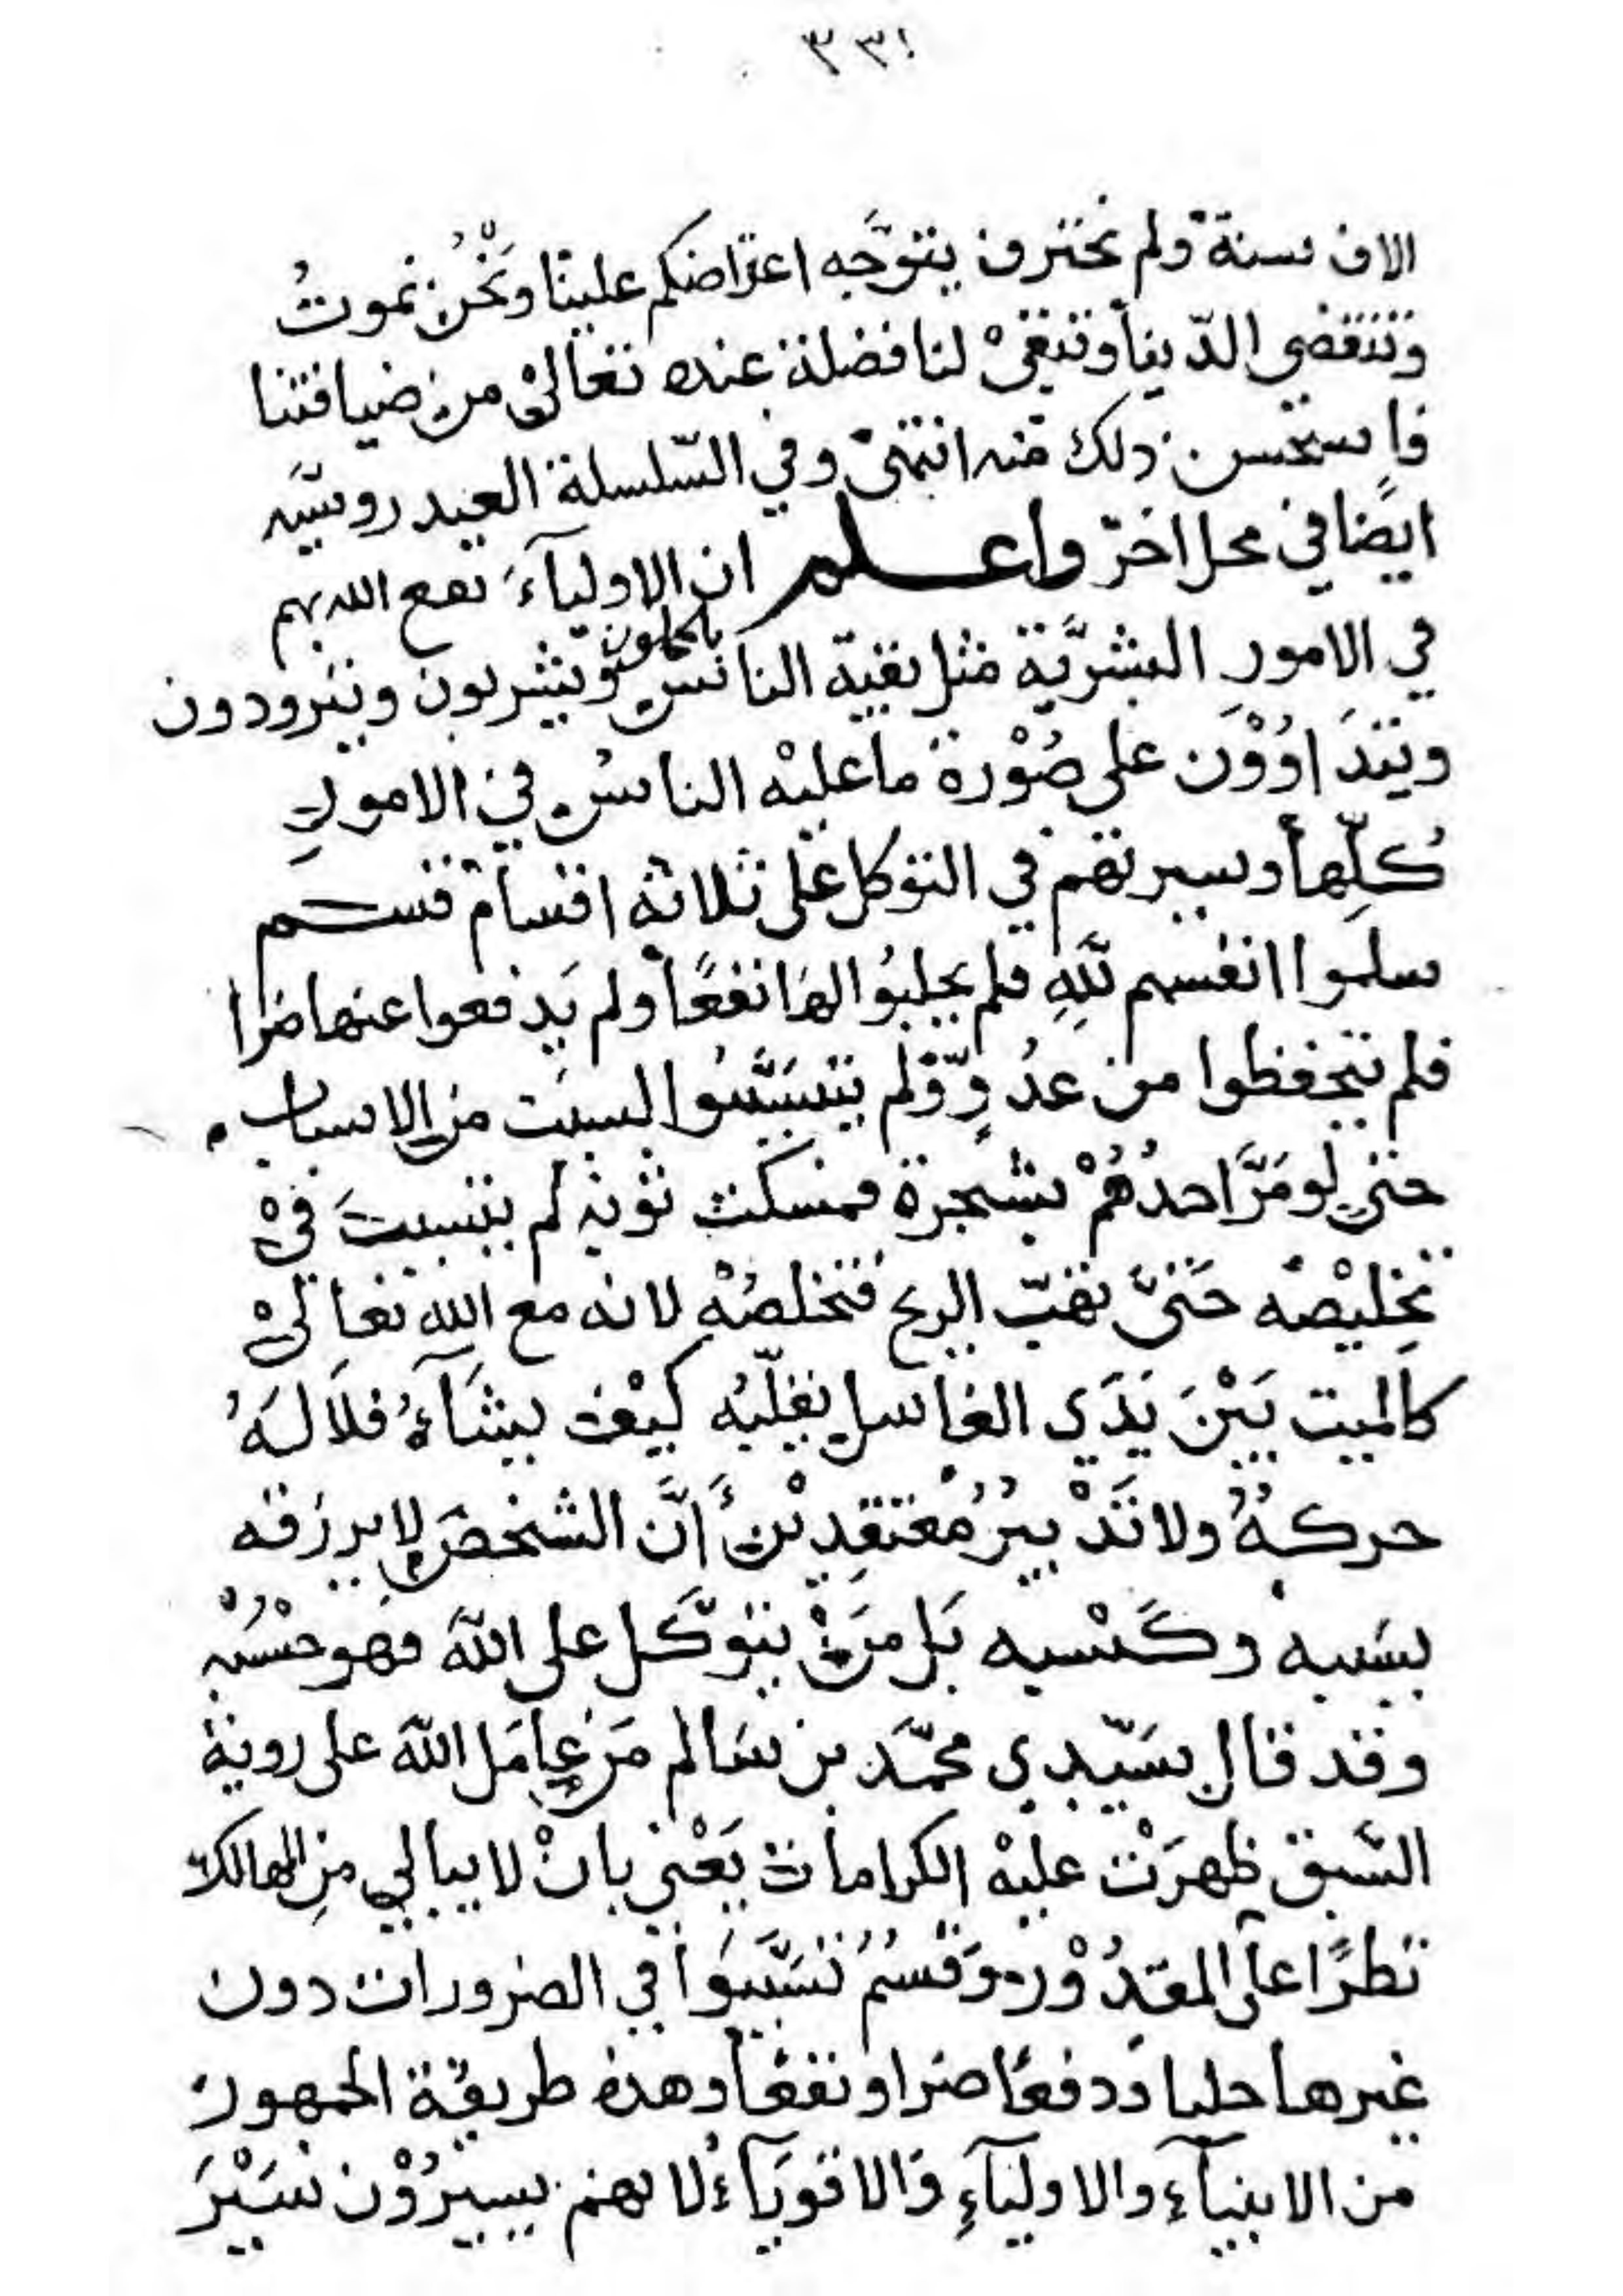 ٣٣١
الاف سنة ولم نحترف يتوجه اعتراضكم علينا ونحن نموت
وتنقضي الدنيا وتبقى لنا فضلة عنده تعالى من ضيافتنا
فاستحسن ذلك منه انتهى وفي السلسلة العيدروسيه
ايضا في محل اخر واعلم ان الاولياء نفع الله بهم
في الامور البشرية مثل بقية الناس ياكلون ويشربون ويتزودون
ويتداوون على صورة ما عليه الناس في الامور
كلها وسيرتهم في التوكل على ثلاثة اقسام قسم
سلموا انفسهم لله فلم يجلبوا لها نفعا ولم يدفعوا عنها ضرا
فلم يتحفظوا من عدو ولم يتسببوا لسبب من الاسباب
حتى لو مر احدهم بشجرة فمسكت ثوبه لم يتسبب في
تخليصه حتى تهب الريح فتخلصه لانه مع الله تعالى
كالميت بين يدي الغاسل يقلبه كيف يشاء فلا له
حركة ولا تدبير معتقدين ان الشخص لا يرزقه
بسببه وكسبه بل من يتوكل على الله فهو حسبه
وقد قال سيدي محمد بن سالم من عامل الله على روية
السبق ظهرت عليه الكرامات يعني بان لا يبالي من المهالك
نظرا على المقدور وقسم تسببوا في الضرورات دون
غيرها جلبا ودفعا ضرا ونفعا وهذه طريقة الجمهور
من الانبياء والاولياء والاقوياء لانهم يسيرون سير